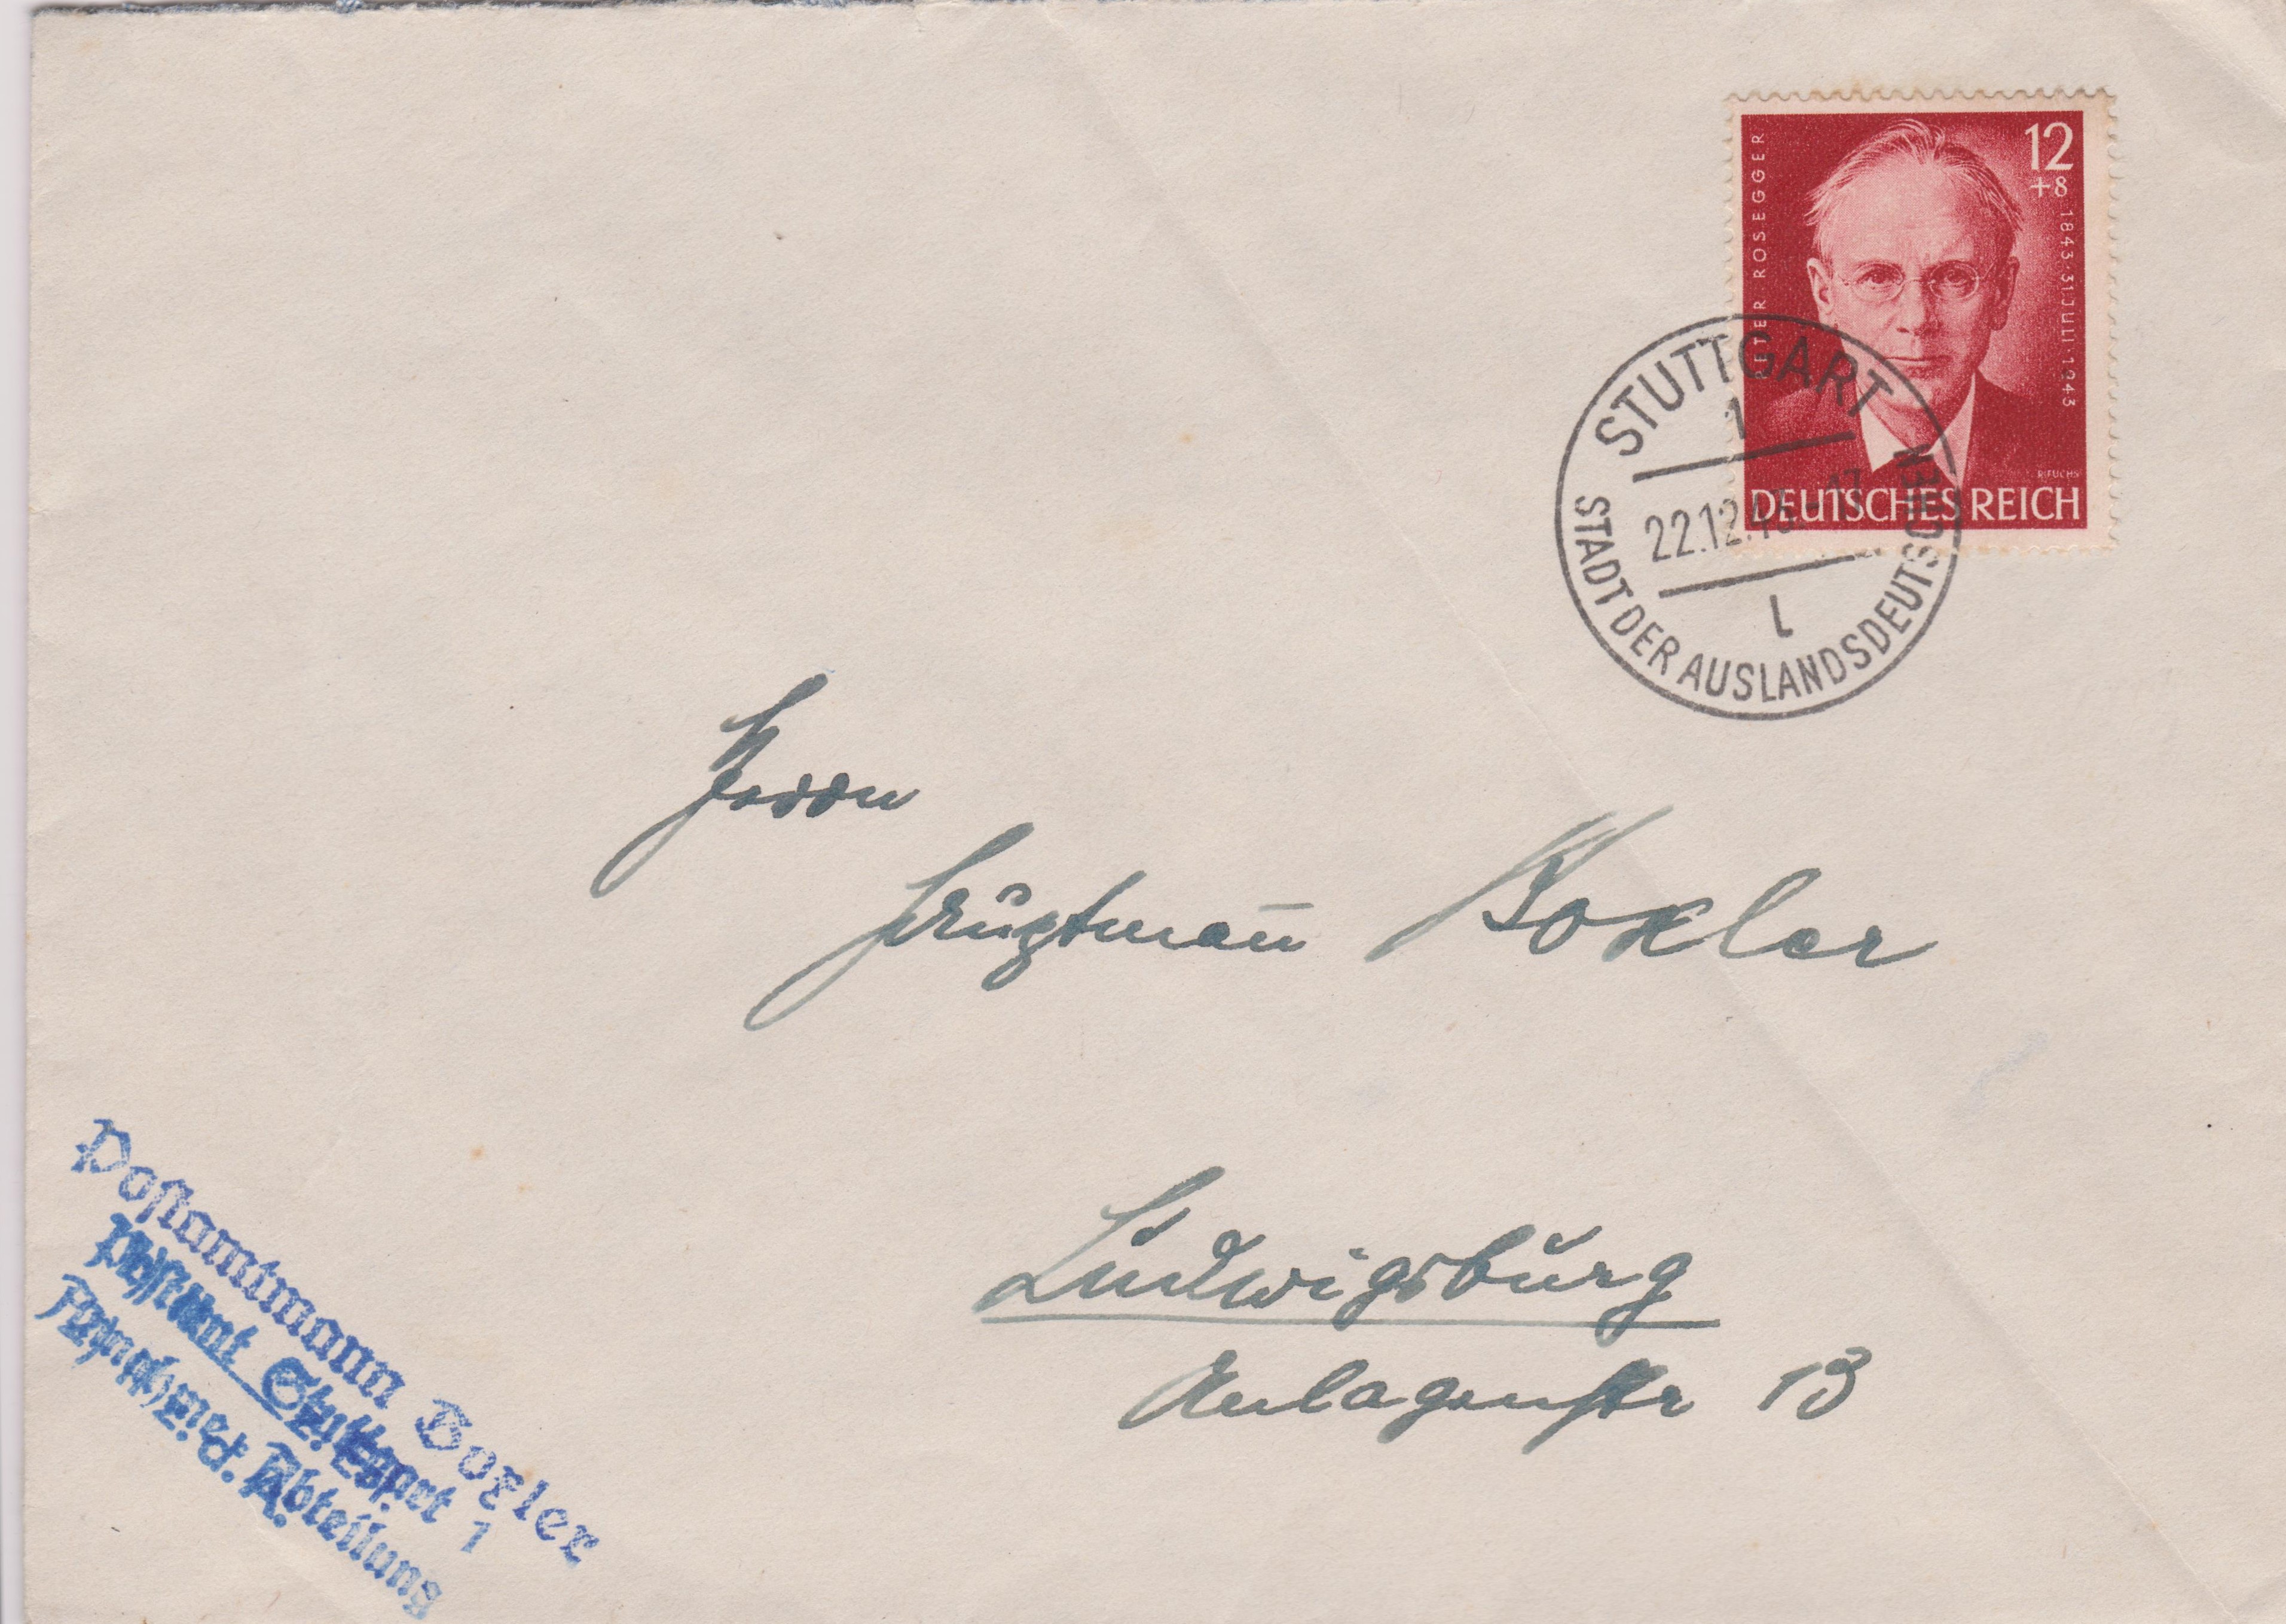 12
+8
PETER ROSEGGER
1843·31.JULI·1943
R.FUCHS
DEUTSCHES REICH
STUTTGART
1
22.12.43.-17
l
STADT DER AUSLANDSDEUTSCHEN
Herrn
Hauptman̅ Boxler
Ludwigsburg
Anlagenstr 13
Postamtmann Boxler
Postamt Stuttgart 1
Abteilung